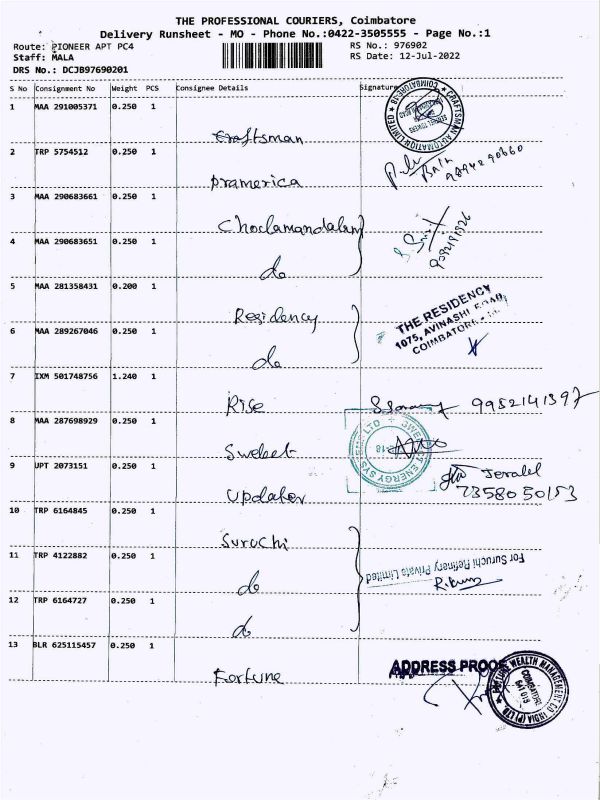 THE PROFESSIONAL COURIERS, Coimbatore
Delivery Runsheet - MO - Phone No.:0422-3505555 - Page No.:1
Route: PIONEER APT PC4
RS No.: 976902
Staff: MALA
RS Date: 12-Jul-2022
DRS No.: DCJB97690201
S No Consignment No Weight PCS Consignee Details Signature
1 MAA 291005371 0.250 1
Craftsman
CRAFTSMAN AUTOMATION LIMITED
2 TRP 5754512 0.250 1
pramerica
Bala
9894290660
3 MAA 290683661 0.250 1
Cholamandalam
4 MAA 290683651 0.250 1
do
5 MAA 281358431 0.200 1
Residency
THE RESIDENCY
1075, AVINASHI ROAD
COIMBATORE
6 MAA 289267046 0.250 1
do
7 IXM 501748756 1.240 1
Rise
9952141397
8 MAA 287698929 0.250 1
Swelect
SWELECT ENERGY SYSTEMS LTD
9 UPT 2073151 0.250 1
Updater
Jeralel
73580 50153
10 TRP 6164845 0.250 1
Suruchi
11 TRP 4122882 0.250 1
do
For Suruchi Refinery Private Limited
12 TRP 6164727 0.250 1
do
13 BLR 625115457 0.250 1
Fortune
ADDRESS PROOF
WEALTH MANAGEMENT CO. INDIA (P) LTD
COIMBATORE
641 018